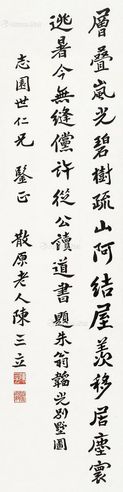 層叠嵐光碧樹疏山阿結屋羨移居塵寰
逃暑今無縫儻许從公讀道書題朱翁韜光别墅圖
志園世仁兄鑒正
散原老人陳三立